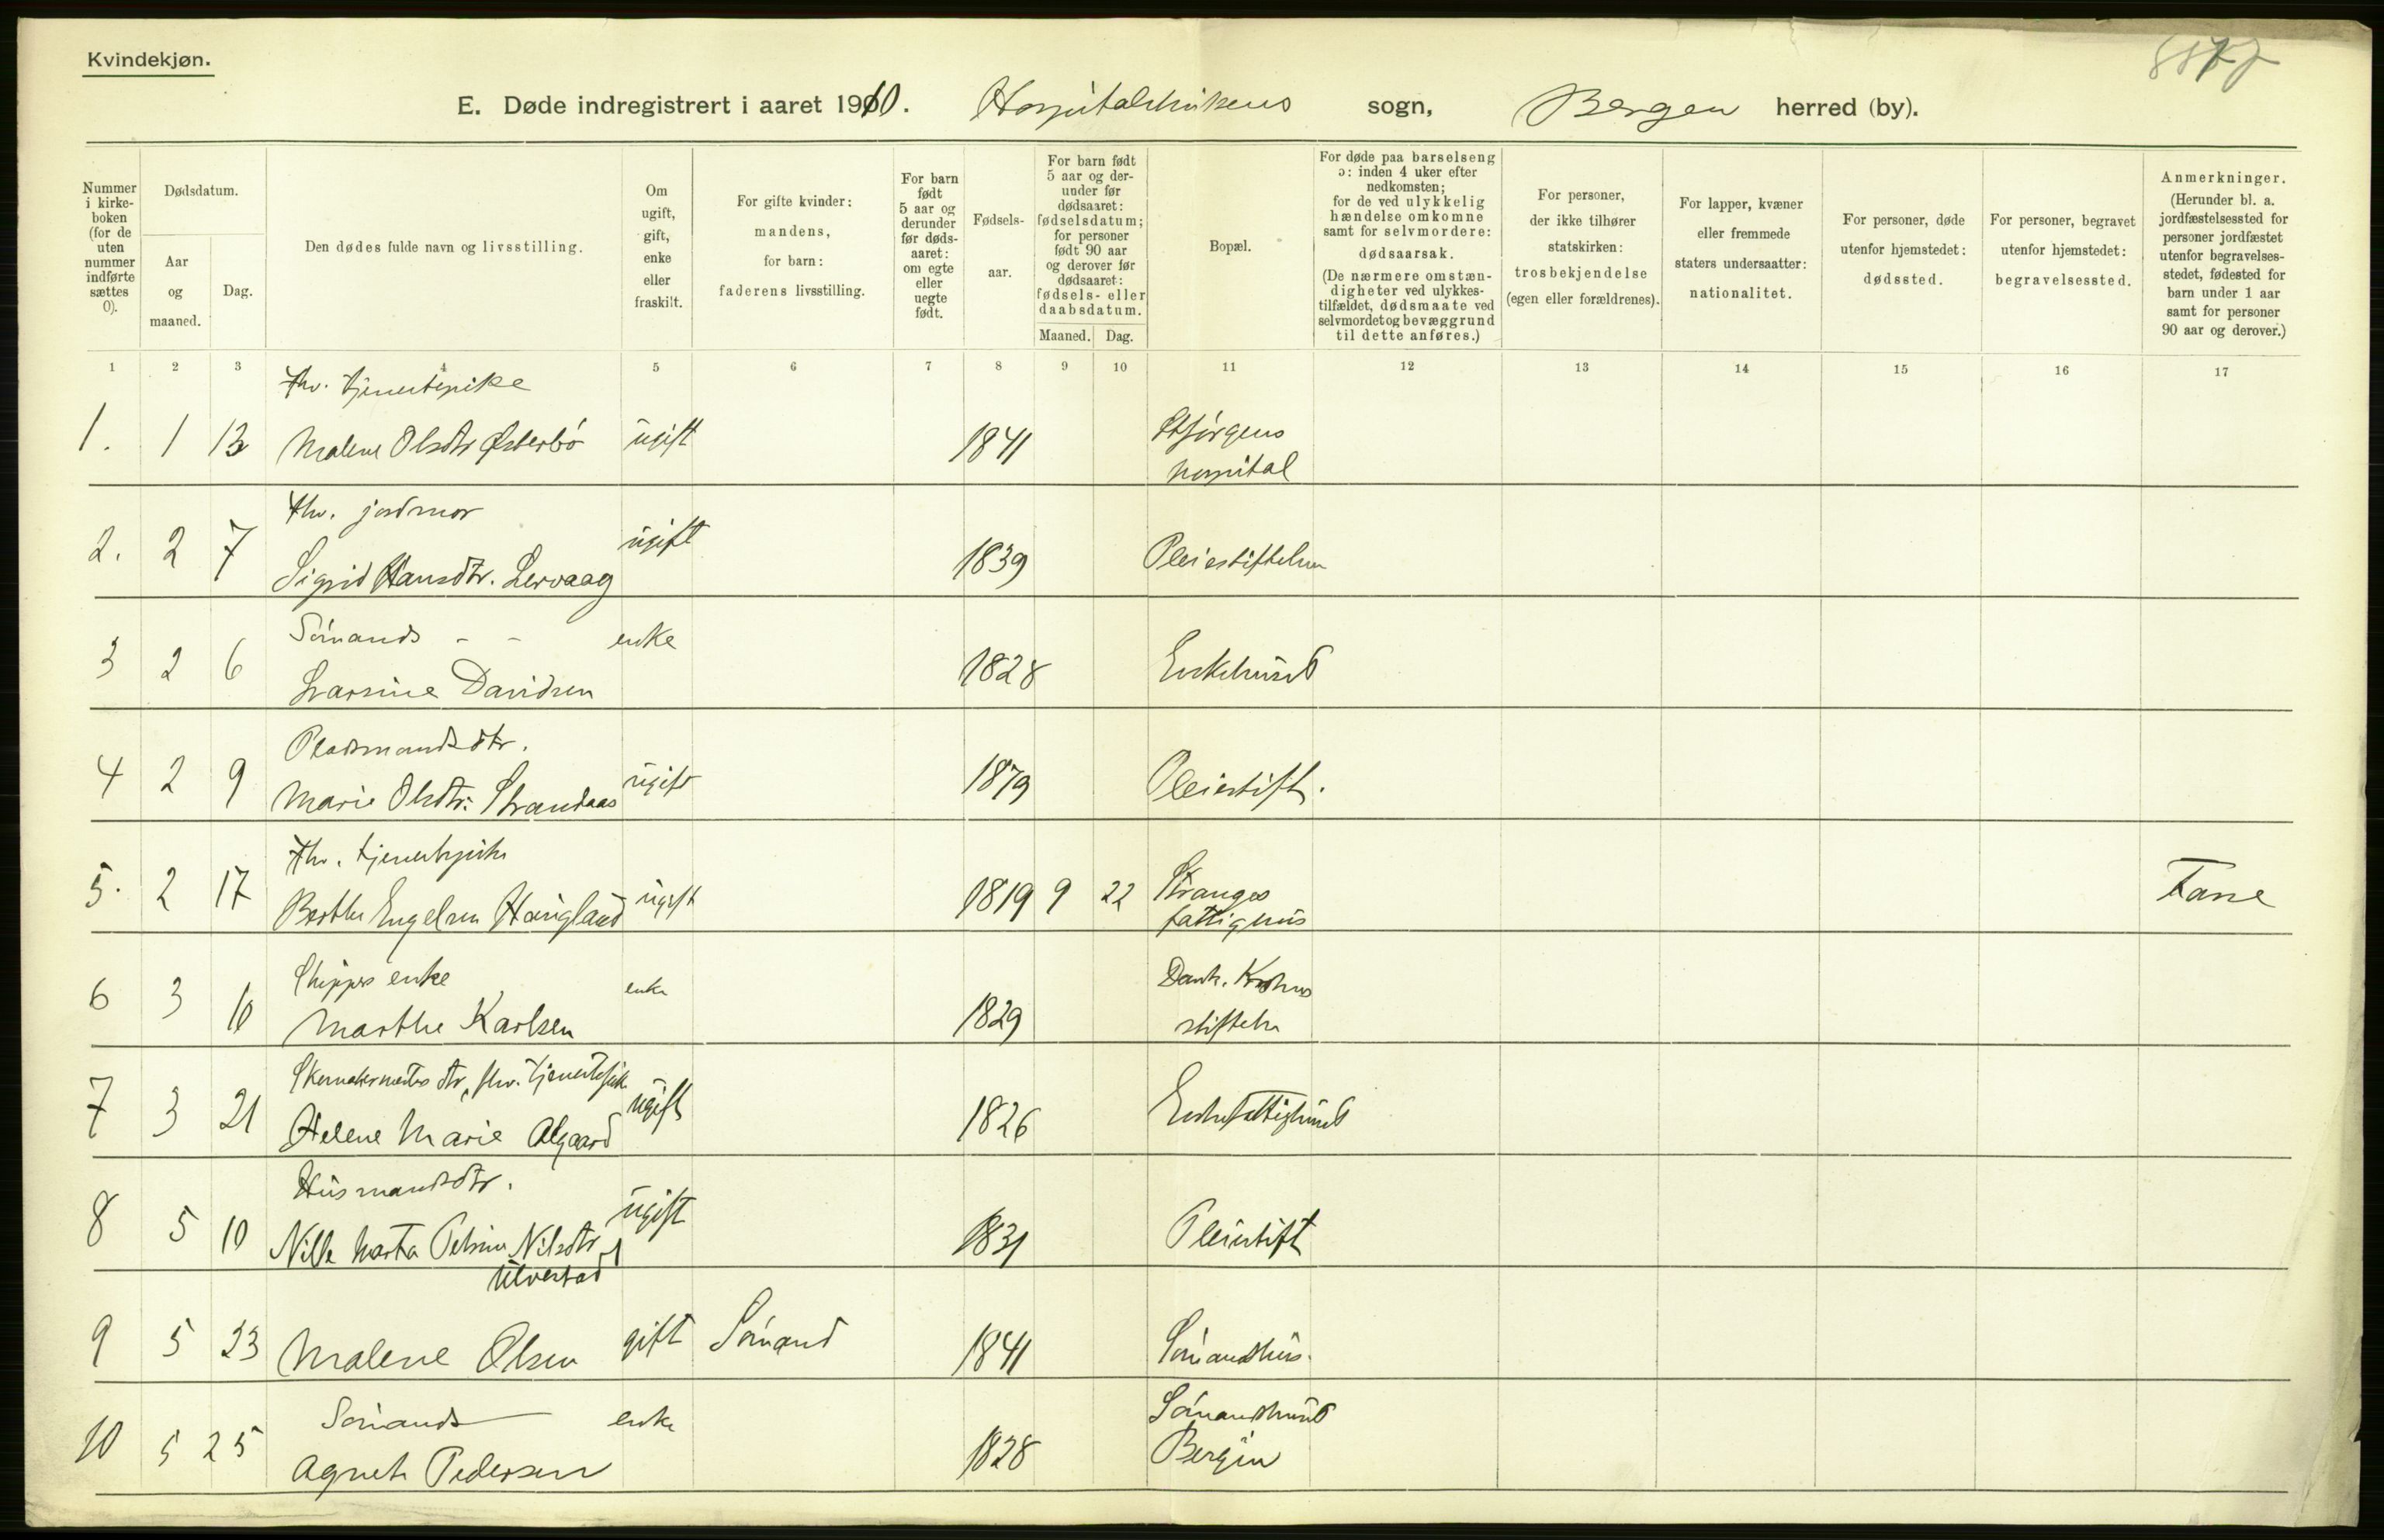 Kvindekjøn.
E. Døde indregistrert i aaret 1910. Hospitalskirkens sogn, Bergen herred (by).
Nummer i kirke-boken (for de uten nummer indførte sættes 0).
Dødsdatum.
Aar og maaned.
Dag.
Den dødes fulde navn og livsstilling.
Om ugift, gift, enke eller fraskilt.
For gifte kvinder: mandens, for barn: faderens livsstilling.
For barn født 5 aar og derunder før døds-aaret: om egte eller uegte født.
Fødsels-aar.
For barn født 5 aar og der-under før dødsaaret: fødselsdatum; for personer født 90 aar og derover før dødsaaret: fødsels- eller daabsdatum.
Maaned. Dag.
Bopæl.
For døde paa barselseng ɔ: inden 4 uker efter nedkomsten; for de ved ulykkelig hændelse omkomne samt for selvmordere: dødsaarsak. (De nærmere omstæn-digheter ved ulykkes-tilfældet, dødsmaate ved selvmordet og bevæggrund til dette anføres.)
For personer, der ikke tilhører statskirken: trosbekjendelse (egen eller forældrenes).
For lapper, kvæner eller fremmede staters undersaatter: nationalitet.
For personer, døde utenfor hjemstedet: dødssted.
For personer, begravet utenfor hjemstedet: begravelsessted.
Anmerkninger. (Herunder bl. a. jordfæstelsessted for personer jordfæstet utenfor begravelses-stedet, fødested for barn under 1 aar samt for personer 90 aar og derover.)
1 2 3 4 5 6 7 8 9 10 11 12 13 14 15 16 17
fhv. tjenestepike
1. 1 13 Malene Olsdtr Østerbö ugift 1841 St Jörgens hospital
fhv. jordmor
2. 2 7 Sigrid Hansdtr. Lervaag ugift 1839 Pleiestiftelsen
Sömands - - enke
3 2 6 Larsine Davidsen 1828 Enkehuset
Pladsmandsdtr.
4 2 9 Marie Olsdtr. Strandaas ugift 1879 Pleiestift.
fhv. tjenestepike
5. 2 17 Berthe Engelsen Haugland ugift 1819 9 22 Stranges fattighus Fane
Skippers enke
6 3 10 Marthe Karlsen enke 1829 Dank. Krohns stiftelse
Skomakermesters dtr, fhv. tjenestepike
7 3 21 Helene Marie Algaard ugift 1826 Enkefattighuset
Husmandsdtr.
8 5 10 Nille Marta Petrine Nilsdtr Ulvestad ugift 1831 Pleiestift
9 5 23 Malene Olsen gift Sömand 1841 Sömandshus.
Sömands enke
10 5 25 Agnete Pedersen 1828 Sömandshuset Bergen